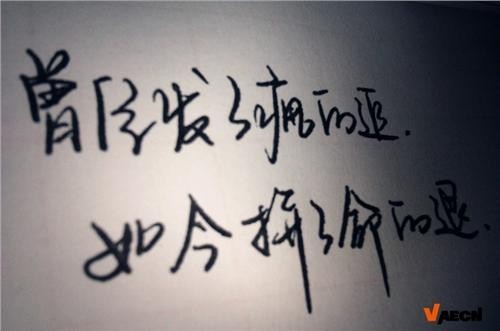 曾经发了疯的追.
如今拼了命的退.
VAECN